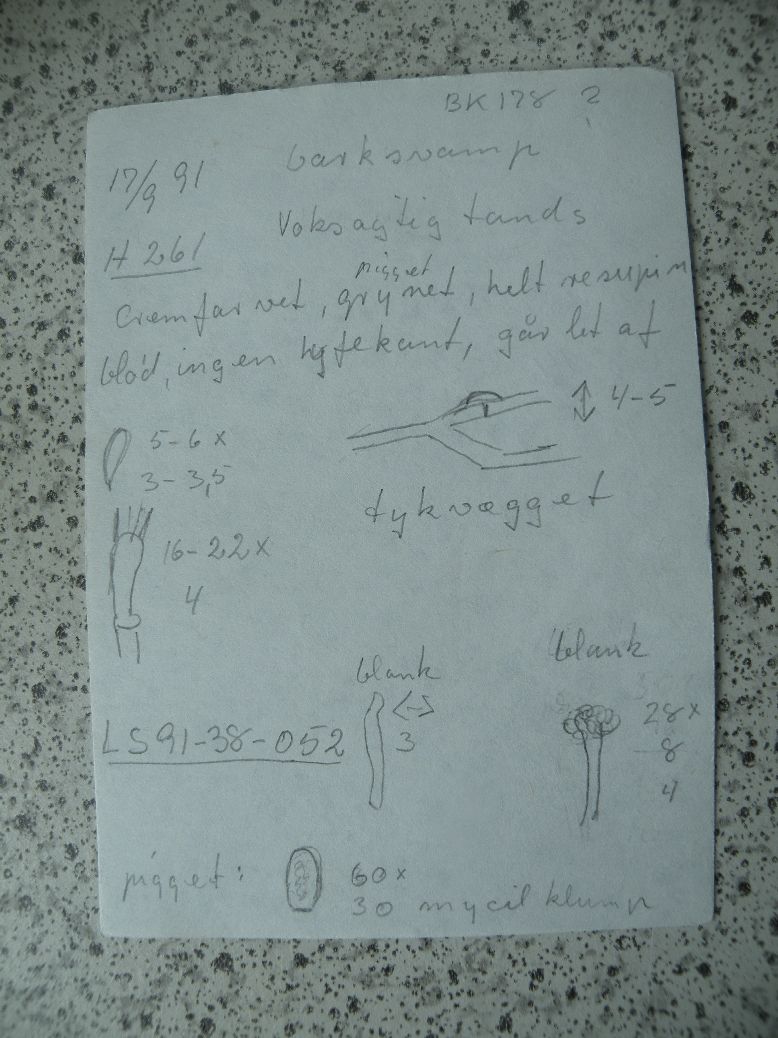 BK 178 ?
17/9 91
barksvamp
H 261
Voksagtig tands
pigget
cremfarvet, grynet, helt resupin
blød, ingen hyfekant, går let af
5-6 x
3-3,5
4-5
tykvægget
16-22 x
4
blank
3
blank
28 x
8
4
LS91-38-052
pigget:
60 x
30 mycil klump